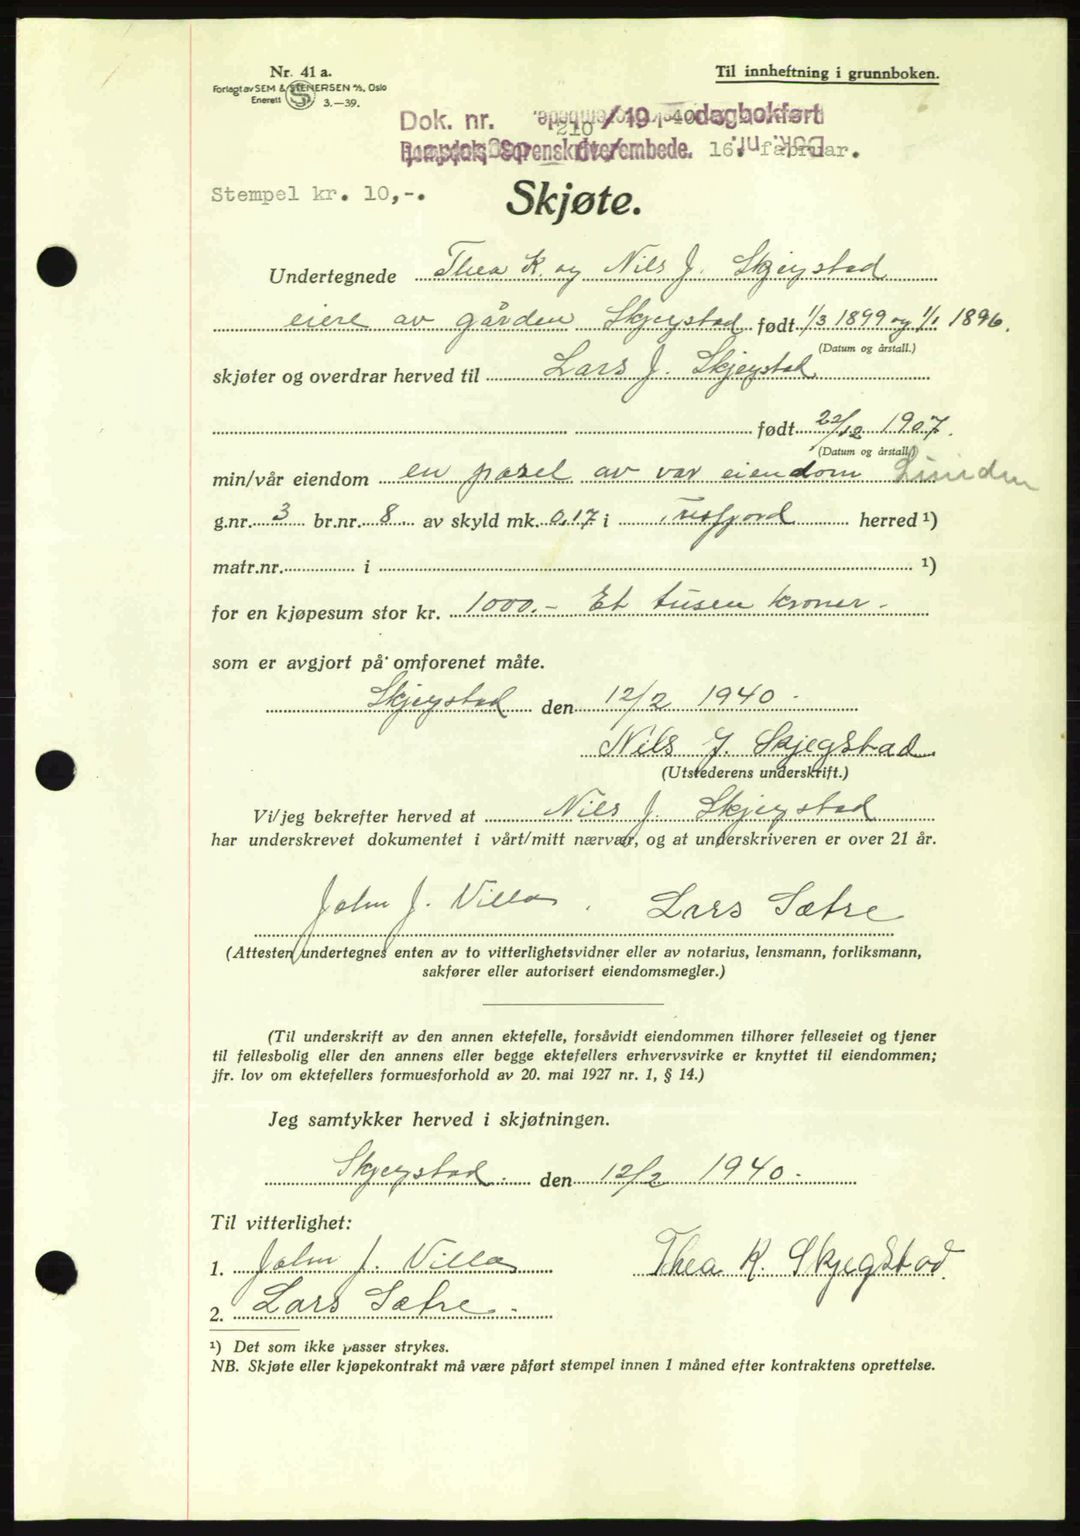 Nr. 41 a.
Forlagt av SEM & STENERSEN A/S, Oslo
Enerett 3.—39.
Til innheftning i grunnboken.
Dok. nr. 210 /19 40 dagbokført
Sorenskriverembede. 16. februar.
Stempel kr. 10,-.
Skjøte.
Undertegnede Thea K. og Nils J. Skjegstad
eiere av gården Skjegstad født 1/3 1899 og 1/1 1896.
(Datum og årstall.)
skjøter og overdrar herved til Lars J. Skjegstad
født 22/12 1907.
(Datum og årstall.)
min/vår eiendom en parsel av vår eiendom
g.nr. 3 br.nr. 8 av skyld mk. 0,17 i Tresfjord herred ¹)
matr.nr. i ¹)
for en kjøpesum stor kr. 1000.- Et tusen kroner.
som er avgjort på omforenet måte.
Skjegstad den 12/2 1940.
Nils J. Skjegstad
(Utstederens underskrift.)
Vi/jeg bekrefter herved at Nils J. Skjegstad
har underskrevet dokumentet i vårt/mitt nærvær, og at underskriveren er over 21 år.
John J. Villa. Lars Sætre
(Attesten undertegnes enten av to vitterlighetsvidner eller av notarius, lensmann, forliksmann,
sakfører eller autorisert eiendomsmegler.)
(Til underskrift av den annen ektefelle, forsåvidt eiendommen tilhører felleseiet og tjener
til fellesbolig eller den annens eller begge ektefellers erhvervsvirke er knyttet til eiendommen;
jfr. lov om ektefellers formuesforhold av 20. mai 1927 nr. 1, § 14.)
Jeg samtykker herved i skjøtningen.
Skjegstad. den 12/2 1940.
Til vitterlighet:
1. John J. Villa
Thea K. Skjegstad.
2. Lars Sætre.
¹) Det som ikke passer strykes.
NB. Skjøte eller kjøpekontrakt må være påført stempel innen 1 måned efter kontraktens oprettelse.